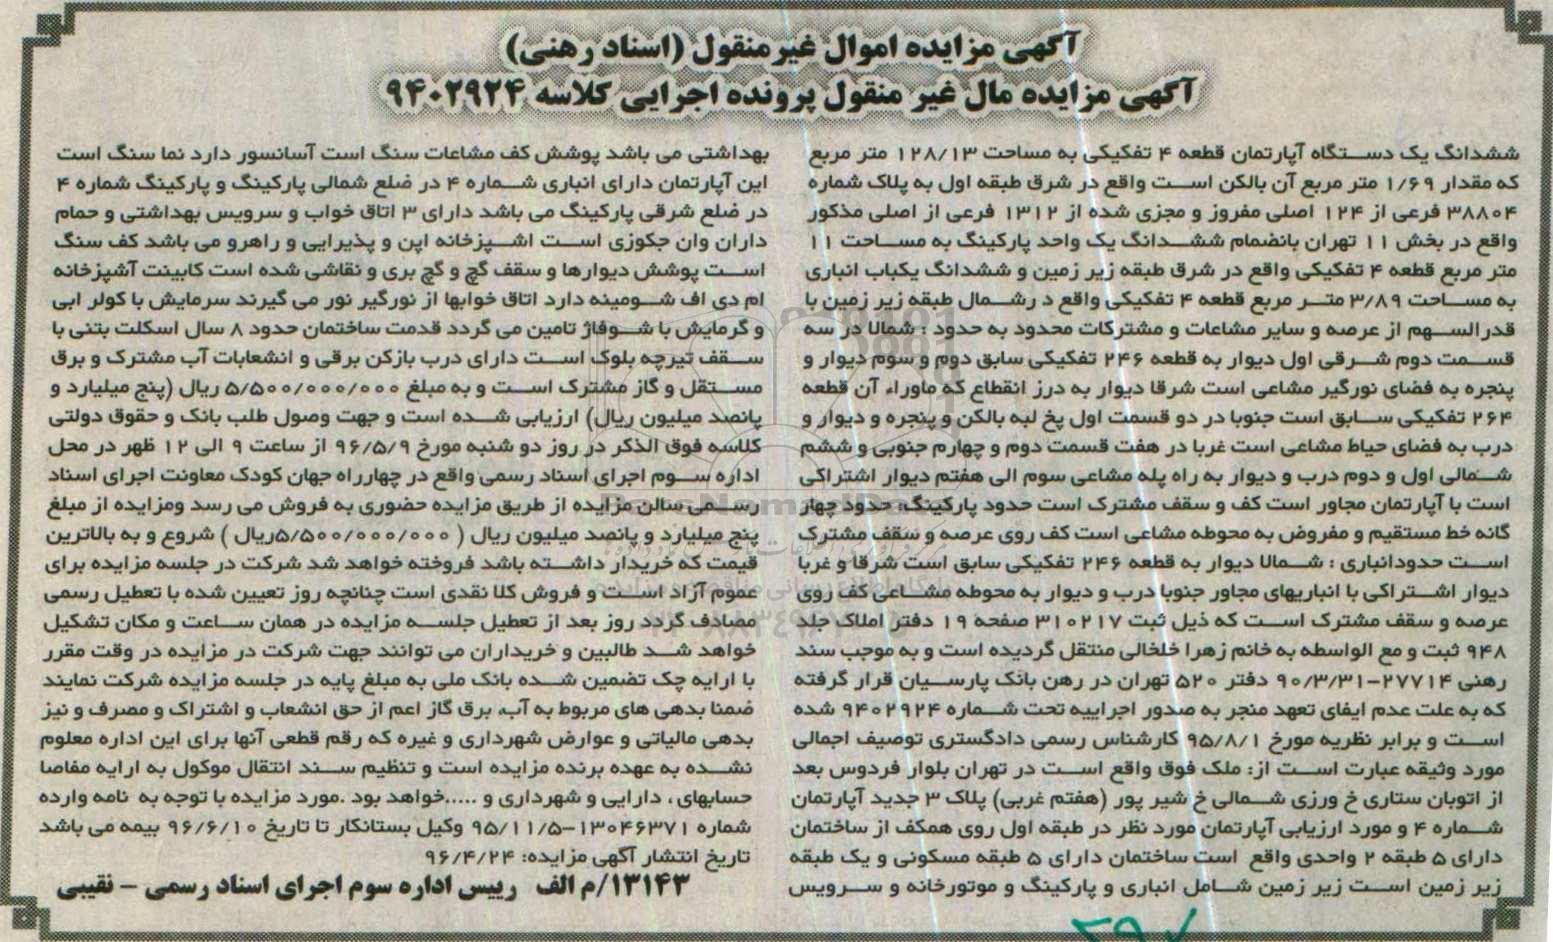 آگهی مزایده اموال غیرمنقول (اسناد رهنی)
آگهی مزایده مال غیر منقول پرونده اجرایی کلاسه ۹۴۰۲۹۲۴
ششدانگ یک دستگاه آپارتمان قطعه ۴ تفکیکی به مساحت ۱۲۸/۱۳ متر مربع
که مقدار ۱/۶۹ متر مربع آن بالکن است واقع در شرق طبقه اول به پلاک شماره
۳۸۸۰۴ فرعی از ۱۲۴ اصلی مفروز و مجزی شده از ۱۳۱۲ فرعی از اصلی مذکور
واقع در بخش ۱۱ تهران بانضمام ششدانگ یک واحد پارکینگ به مساحت ۱۱
متر مربع قطعه ۴ تفکیکی واقع در شرق طبقه زیر زمین و ششدانگ یکباب انباری
به مساحت ۳/۸۹ متر مربع قطعه ۴ تفکیکی واقع د رشمال طبقه زیر زمین با
قدرالسهم از عرصه و سایر مشاعات و مشترکات محدود به حدود : شمالا در سه
قسمت دوم شرقی اول دیوار به قطعه ۲۴۶ تفکیکی سابق دوم و سوم دیوار و
پنجره به فضای نورگیر مشاعی است شرقا دیوار به درز انقطاع که ماوراء آن قطعه
۲۶۴ تفکیکی سابق است جنوبا در دو قسمت اول پخ لبه بالکن و پنجره و دیوار و
درب به فضای حیاط مشاعی است غربا در هفت قسمت دوم و چهارم جنوبی و ششم
شمالی اول و دوم درب و دیوار به راه پله مشاعی سوم الی هفتم دیوار اشتراکی
است با آپارتمان مجاور است کف و سقف مشترک است حدود پارکینگ: حدود چهار
گانه خط مستقیم و مفروض به محوطه مشاعی است کف روی عرصه و سقف مشترک
است حدودانباری : شمالا دیوار به قطعه ۲۴۶ تفکیکی سابق است شرقا و غربا
دیوار اشتراکی با انباریهای مجاور جنوبا درب و دیوار به محوطه مشاعی کف روی
عرصه و سقف مشترک است که ذیل ثبت ۳۱۰۲۱۷ صفحه ۱۹ دفتر املاک جلد
۹۴۸ ثبت و مع الواسطه به خانم زهرا خلخالی منتقل گردیده است و به موجب سند
رهنی ۲۷۷۱۴-۹۰/۳/۳۱ دفتر ۵۲۰ تهران در رهن بانک پارسیان قرار گرفته
که به علت عدم ایفای تعهد منجر به صدور اجراییه تحت شماره ۹۴۰۲۹۲۴ شده
است و برابر نظریه مورخ ۹۵/۸/۱ کارشناس رسمی دادگستری توصیف اجمالی
مورد وثیقه عبارت است از: ملک فوق واقع است در تهران بلوار فردوس بعد
از اتوبان ستاری خ ورزی شمالی خ شیر پور (هفتم غربی) پلاک ۳ جدید آپارتمان
شماره ۴ و مورد ارزیابی آپارتمان مورد نظر در طبقه اول روی همکف از ساختمان
دارای ۵ طبقه ۲ واحدی واقع است ساختمان دارای ۵ طبقه مسکونی و یک طبقه
زیر زمین است زیر زمین شامل انباری و پارکینگ و موتورخانه و سرویس
بهداشتی می باشد پوشش کف مشاعات سنگ است آسانسور دارد نما سنگ است
این آپارتمان دارای انباری شماره ۴ در ضلع شمالی پارکینگ و پارکینگ شماره ۴
در ضلع شرقی پارکینگ می باشد دارای ۳ اتاق خواب و سرویس بهداشتی و حمام
داران وان جکوزی است اشپزخانه اپن و پذیرایی و راهرو می باشد کف سنگ
است پوشش دیوارها و سقف گچ و گچ بری و نقاشی شده است کابینت آشپزخانه
ام دی اف شومینه دارد اتاق خوابها از نورگیر نور می گیرند سرمایش با کولر ابی
و گرمایش با شوفاژ تامین می گردد قدمت ساختمان حدود ۸ سال اسکلت بتنی با
سقف تیرچه بلوک است دارای درب بازکن برقی و انشعابات آب مشترک و برق
مستقل و گاز مشترک است و به مبلغ ۵/۵۰۰/۰۰۰/۰۰۰ ریال (پنج میلیارد و
پانصد میلیون ریال) ارزیابی شده است و جهت وصول طلب بانک و حقوق دولتی
کلاسه فوق الذکر در روز دو شنبه مورخ ۹۶/۵/۹ از ساعت ۹ الی ۱۲ ظهر در محل
اداره سوم اجرای اسناد رسمی واقع در چهارراه جهان کودک معاونت اجرای اسناد
رسمی سالن مزایده از طریق مزایده حضوری به فروش می رسد ومزایده از مبلغ
پنج میلیارد و پانصد میلیون ریال ( ۵/۵۰۰/۰۰۰/۰۰۰ریال ) شروع و به بالاترین
قیمت که خریدار داشته باشد فروخته خواهد شد شرکت در جلسه مزایده برای
عموم آزاد است و فروش کلا نقدی است چنانچه روز تعیین شده با تعطیل رسمی
مصادف گردد روز بعد از تعطیل جلسه مزایده در همان ساعت و مکان تشکیل
خواهد شد طالبین و خریداران می توانند جهت شرکت در مزایده در وقت مقرر
با ارایه چک تضمین شده بانک ملی به مبلغ پایه در جلسه مزایده شرکت نمایند
ضمنا بدهی های مربوط به آب، برق گاز اعم از حق انشعاب و اشتراک و مصرف و نیز
بدهی مالیاتی و عوارض شهرداری و غیره که رقم قطعی آنها برای این اداره معلوم
نشده به عهده برنده مزایده است و تنظیم سند انتقال موکول به ارایه مفاصا
حسابهای ، دارایی و شهرداری و .....خواهد بود .مورد مزایده با توجه به نامه وارده
شماره ۱۳۰۴۶۳۷۱-۹۵/۱۱/۵ وکیل بستانکار تا تاریخ ۹۶/۶/۱۰ بیمه می باشد
تاریخ انتشار آگهی مزایده: ۹۶/۴/۲۴
۱۳۱۴۳/م الف رییس اداره سوم اجرای اسناد رسمی - نقیبی